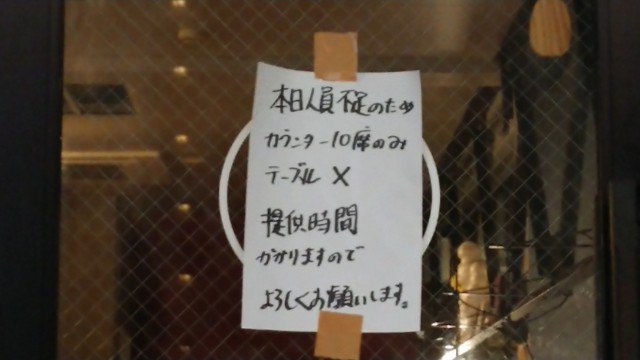 本日人員不足のため
カウンター10席のみ
テーブル ×
提供時間
かかりますので
よろしくお願いします。